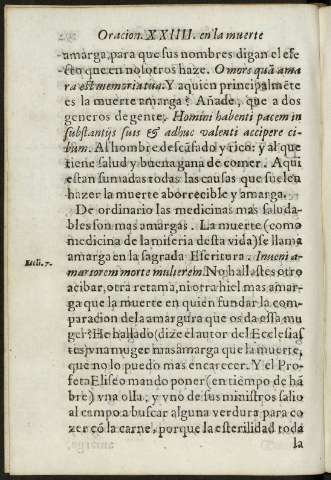 Oracion. XXIIII. en la muerte
amarga, para que sus nombres digan el efe
cto que en nosotros haze. O mors quã ama
ra est memoria tua. Y a quien principalmẽte
es la muerte amarga? Añade, que a dos
generos de gente. Homini habenti pacem in
substantijs suis & adhuc valenti accipere ci-
bum. Al hombre descãsado y rico: y al que
tiene salud y buena gana de comer. Aqui
estan sumadas todas las causas que suelen
hazer la muerte aborrecible y amarga.
De ordinario las medicinas mas saluda-
bles son mas amargas. La muerte (como
medicina de la miseria desta vida) se llama
amarga en la sagrada Escritura. Inueni a-
Eccli. 7.
mariorem morte mulierem. No hallastes otro
acibar, otra retama, ni otra hiel mas amar-
ga que la muerte en quien fundar la com-
paracion de la amargura que os da essa mu
ger? He hallado (dize el autor del Ecclesias
tes) vna muger mas amarga que la muerte,
que no lo puedo mas encarecer. Y el Pro-
feta Eliseo mando poner (en tiempo de hã
bre) vna olla; y vno de sus ministros salio
al campo a buscar alguna verdura para co
zer cõ la carne, porque la esterilidad toda
la